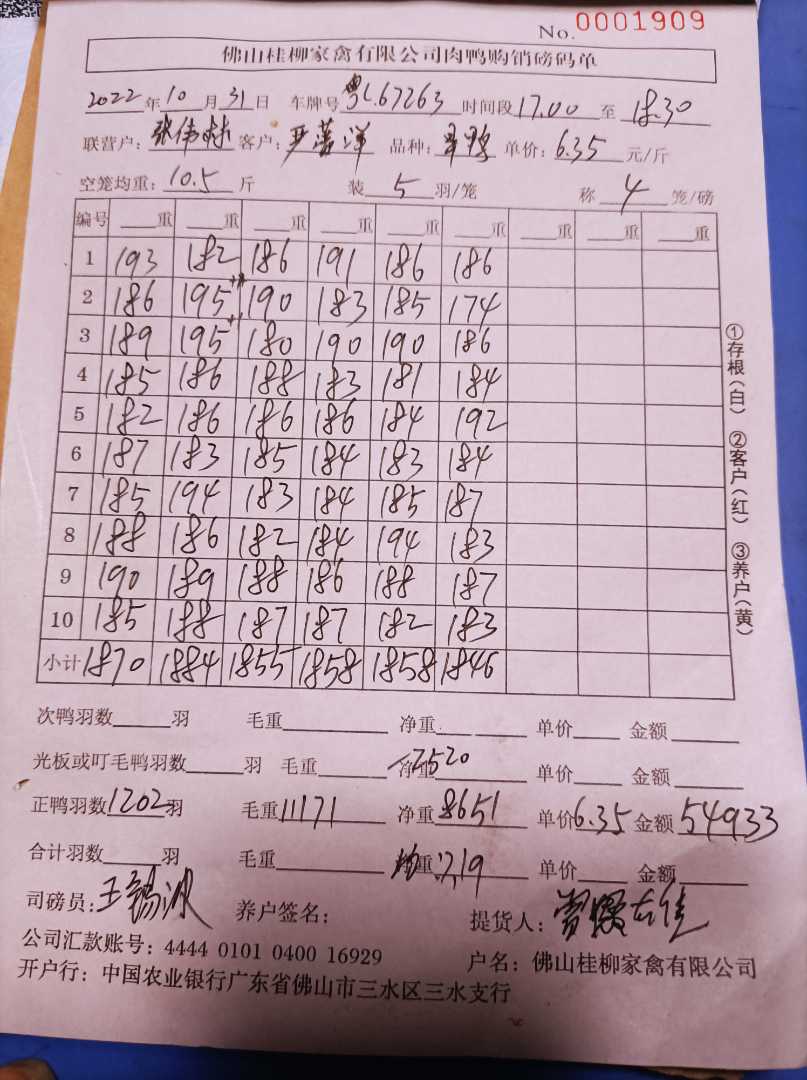 No. 0001909
佛山桂柳家禽有限公司肉鸭购销磅码单
2022年10月31日 车牌号 粤L.67263 时间段 17.00 至 18.30
联营户：张伟林 客户： 品种： 单价：6.35 元/斤
空笼均重：10.5 斤 装 5 羽/笼 称 4 笼/磅
编号 重 重 重 重 重 重 重 重 重
1 193 182 186 191 186 186
2 186 195 190 183 185 174
3 189 195 180 190 190 186
4 185 186 188 183 181 184
5 182 186 186 186 184 192
6 187 183 185 184 183 184
7 185 194 183 184 185 187
8 188 186 182 184 194 183
9 190 189 188 186 188 187
10 185 188 187 187 182 183
小计 1870 1884 1855 1858 1858 1846
①存根(白) ②客户(红) ③养户(黄)
次鸭羽数 羽 毛重 净重 单价 金额
光板或叮毛鸭羽数 羽 毛重 净重 -2520 单价 金额
正鸭羽数 1202 羽 毛重 11171 净重 8651 单价 6.35 金额 54933
合计羽数 羽 毛重 均重 7.19 单价 金额
司磅员：王锡 养户签名： 提货人：
公司汇款账号：4444 0101 0400 16929 户名：佛山桂柳家禽有限公司
开户行：中国农业银行广东省佛山市三水区三水支行